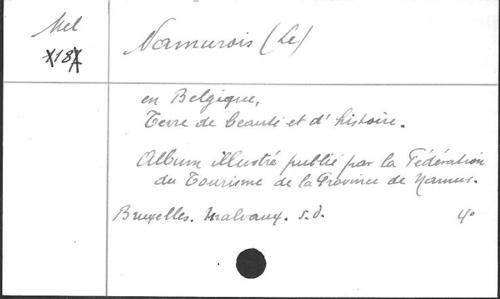 Mel
X187
Namurois (Le)
en Belgique,
Terre de beauté et d'histoire.
Album illustré publié par la Fédération
du Tourisme de la Province de Namur.
Bruxelles. Malvaux. s.d. 4°